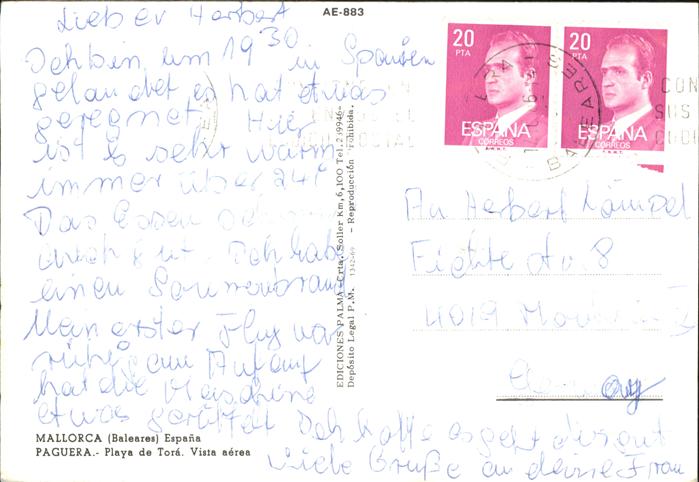 AE-883
Lieber Herbert
Ich bin um 19 30 in Spanien
gelandet es hat etwas
geregnet. Hier
ist es sehr warm
immer über 24°
Das Essen
auch gut. Ich habe
einen Sonnenbrand
Mein erster Flug war
ruhig am Anfang
hat die Maschine
etwas gerüttelt Ich hoffe es geht dir gut
viele Grüße an deine Frau
MALLORCA (Baleares) España
PAGUERA.- Playa de Torá. Vista aérea
EDICIONES PALMA-Crta. Soller Km, 6,100 Tel. 299946-
Depósito Legal P.M. 1342-69 - Reproducción prohibida.
20 PTA
ESPAÑA
CORREOS
20 PTA
ESPAÑA
CORREOS
BALEARES
CON
SUS
An Herbert
8
4019
Germany